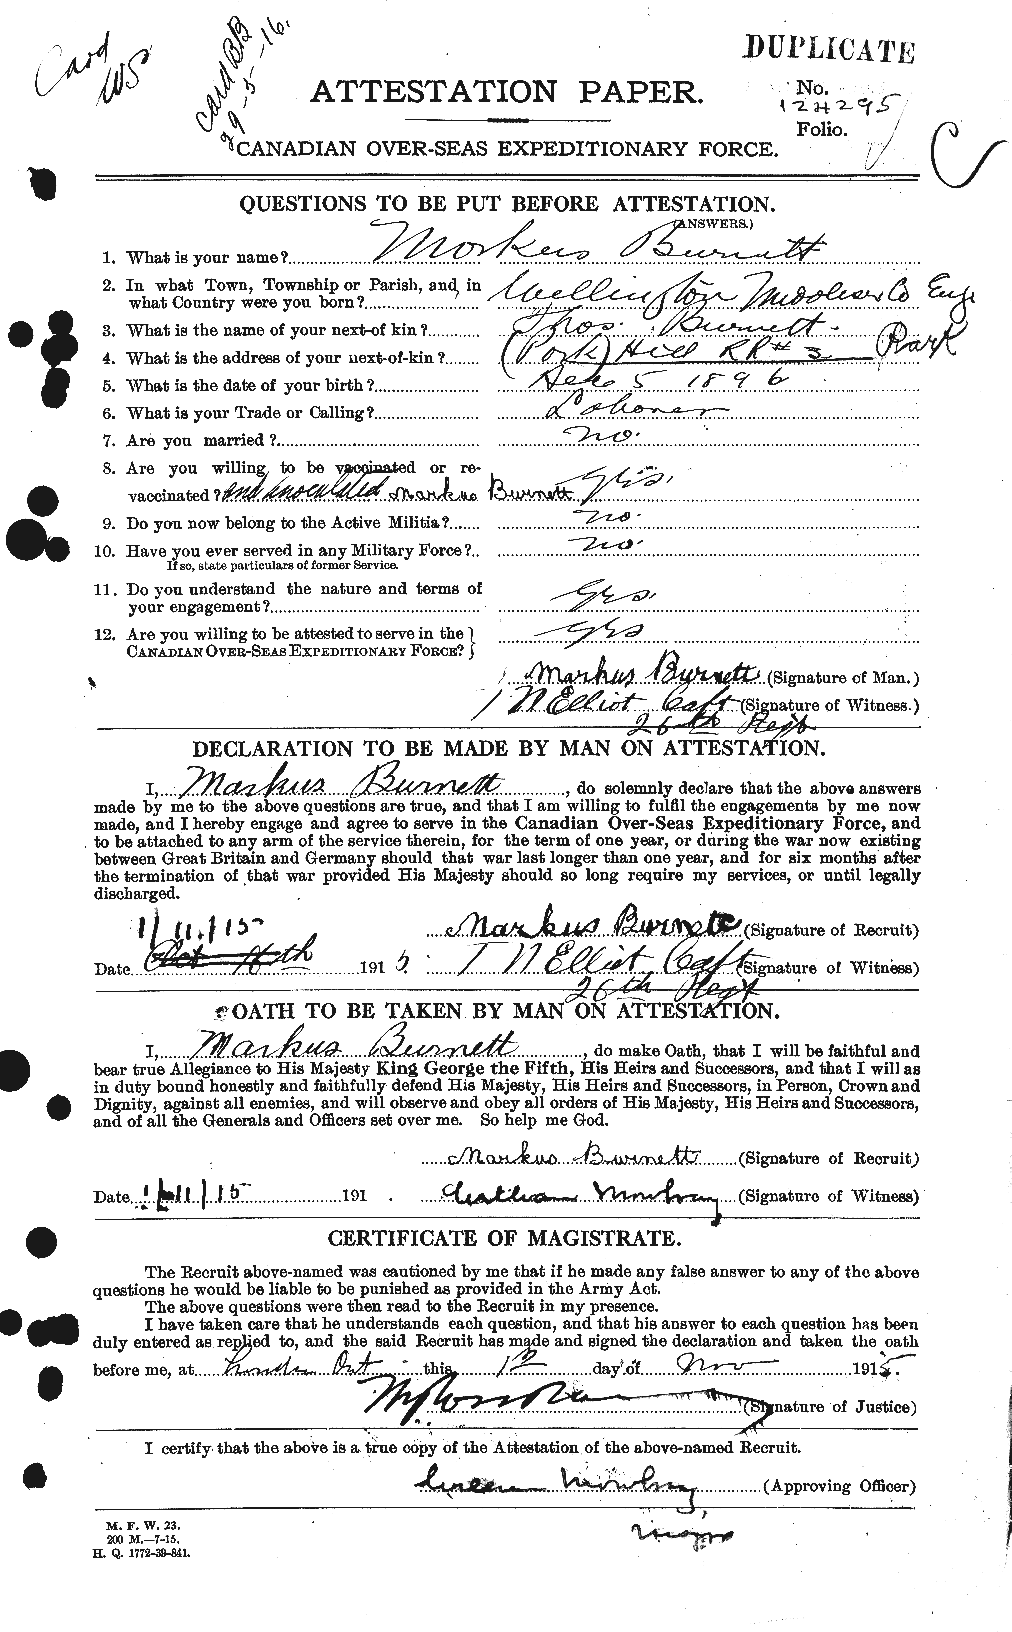 Card
WS
Card BB
29-5-16.
DUPLICATE
ATTESTATION PAPER.
No.
124295
Folio.
C
CANADIAN OVER-SEAS EXPEDITIONARY FORCE.
QUESTIONS TO BE PUT BEFORE ATTESTATION.
(ANSWERS.)
1. What is your name? Markus Burnett
2. In what Town, Township or Parish, and in
what Country were you born? Wellington Middlesex Co Eng
3. What is the name of your next-of kin? Thos. Burnett.
4. What is the address of your next-of-kin? (Pork) Hill RR# 3 Park
5. What is the date of your birth? Dec 5 1896
6. What is your Trade or Calling? Laborer
7. Are you married? no.
8. Are you willing to be vaccinated or re-
vaccinated? and inoculated Markus Burnett yes.
9. Do you now belong to the Active Militia? no.
10. Have you ever served in any Military Force? no.
If so, state particulars of former Service.
11. Do you understand the nature and terms of
your engagement? yes.
12. Are you willing to be attested to serve in the
CANADIAN OVER-SEAS EXPEDITIONARY FORCE? yes
Markus Burnett (Signature of Man.)
T N Elliot Capt (Signature of Witness.)
26th Regt
DECLARATION TO BE MADE BY MAN ON ATTESTATION.
I, Markus Burnett, do solemnly declare that the above answers
made by me to the above questions are true, and that I am willing to fulfil the engagements by me now
made, and I hereby engage and agree to serve in the Canadian Over-Seas Expeditionary Force, and
to be attached to any arm of the service therein, for the term of one year, or during the war now existing
between Great Britain and Germany should that war last longer than one year, and for six months after
the termination of that war provided His Majesty should so long require my services, or until legally
discharged.
1/11/15
Markus Burnett (Signature of Recruit)
Date 1915. T N Elliot Capt (Signature of Witness)
26th Regt
OATH TO BE TAKEN BY MAN ON ATTESTATION.
I, Markus Burnett, do make Oath, that I will be faithful and
bear true Allegiance to His Majesty King George the Fifth, His Heirs and Successors, and that I will as
in duty bound honestly and faithfully defend His Majesty, His Heirs and Successors, in Person, Crown and
Dignity, against all enemies, and will observe and obey all orders of His Majesty, His Heirs and Successors,
and of all the Generals and Officers set over me. So help me God.
Markus Burnett (Signature of Recruit)
Date 1/11/15 191 . Mowbray (Signature of Witness)
CERTIFICATE OF MAGISTRATE.
The Recruit above-named was cautioned by me that if he made any false answer to any of the above
questions he would be liable to be punished as provided in the Army Act.
The above questions were then read to the Recruit in my presence.
I have taken care that he understands each question, and that his answer to each question has been
duly entered as replied to, and the said Recruit has made and signed the declaration and taken the oath
before me, at London Ont this 12 day of Nov 1915.
(Signature of Justice)
I certify that the above is a true copy of the Attestation of the above-named Recruit.
Mowbray (Approving Officer)
Major
M. F. W. 23.
200 M.—7-15.
H. Q. 1772-39-841.